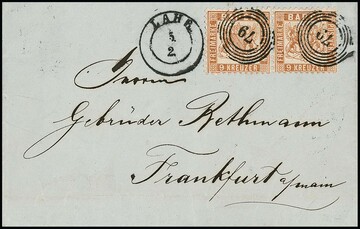 LAHR
5.
2
79
BADEN
FREIMARKE
9 KREUZER
79
BADEN
FREIMARKE
9 KREUZER
Herrn
Gebrüder Rethmann
Frankfurt a/main